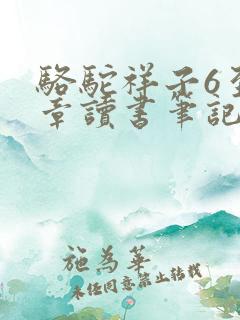 駱駝祥子6至
章讀書筆記
施為華
未經同意禁止轉載